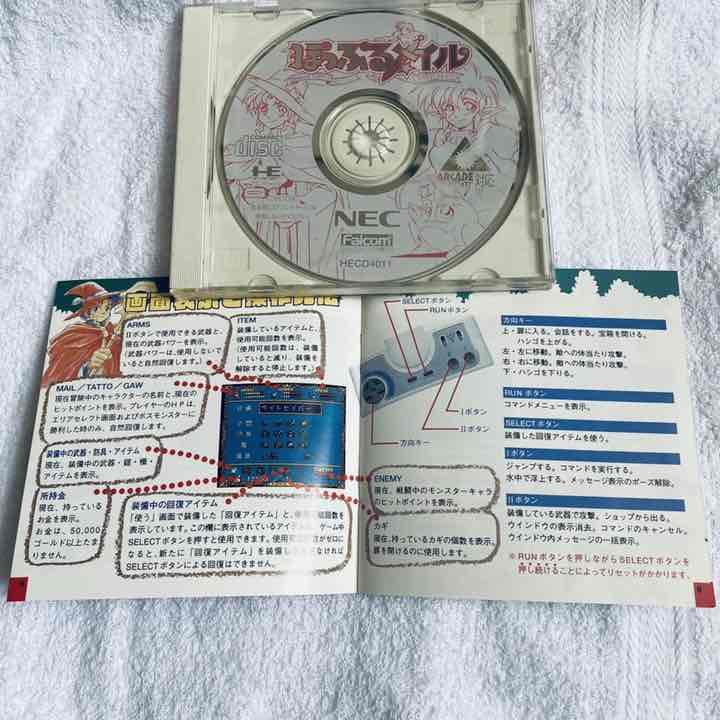 ぽっぷるメイル
COMPACT
disc
HE
NEC
Falcom
HECD4011
ARCADE
CARD
対応
画面表示と操作方法
ARMS
IIボタンで使用できる武器と、
現在の武器パワーを表示。
(武器パワーは、使用しない
と自然回復します。)
ITEM
装備しているアイテムと、
使用可能回数を表示。
(使用可能回数は、装備
していると減り、装備を
解除すると停止します。)
MAIL/TATTO/GAW
現在冒険中のキャラクターの名前と、現在の
ヒットポイントを表示。プレイヤーのHPは、
エリアセレクト画面およびボスモンスターに
勝利した時のみ、自然回復します。
装備中の武器・防具・アイテム
現在、装備中の武器・鎧・楯・
アイテムを表示。
所持金
現在、持っている
お金を表示。
お金は、50,000
ゴールド以上たま
りません。
装備中の回復アイテム
「使う」画面で装備した「回復アイテム」と、使用可能回数
を表示しています。この欄に表示されているアイテムは、ゲーム中
SELECTボタンを押すと使用できます。使用可能回数がゼロに
なると、新たに「回復アイテム」を装備しなおさなければ
SELECTボタンによる回復はできません。
SELECTボタン
RUNボタン
Iボタン
IIボタン
方向キー
ENEMY
現在、戦闘中のモンスターキャラ
のヒットポイントを表示。
カギ
現在、持っているカギの個数を表示。
扉を開けるのに使用します。
方向キー
上・扉に入る。会話をする。宝箱を開ける。
ハシゴを上がる。
左・左に移動。敵への体当たり攻撃。
右・右に移動。敵への体当たり攻撃。
下・ハシゴを下りる。
RUN ボタン
コマンドメニューを表示。
SELECTボタン
装備した回復アイテムを使う。
Iボタン
ジャンプする。コマンドを実行する。
水中で浮上する。メッセージ表示のポーズ解除。
IIボタン
装備している武器で攻撃。ショップから出る。
ウインドウの表示消去。コマンドのキャンセル。
ウインドウ内メッセージの一括表示。
※RUNボタンを押しながらSELECTボタンを
押し続けることによってリセットがかかります。